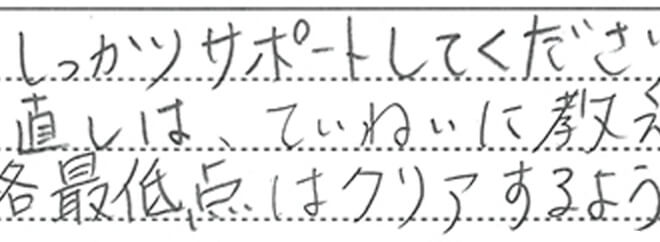 しっかりサポートしてくださ
直しは、ていねいに教え
各最低点はクリアするよう